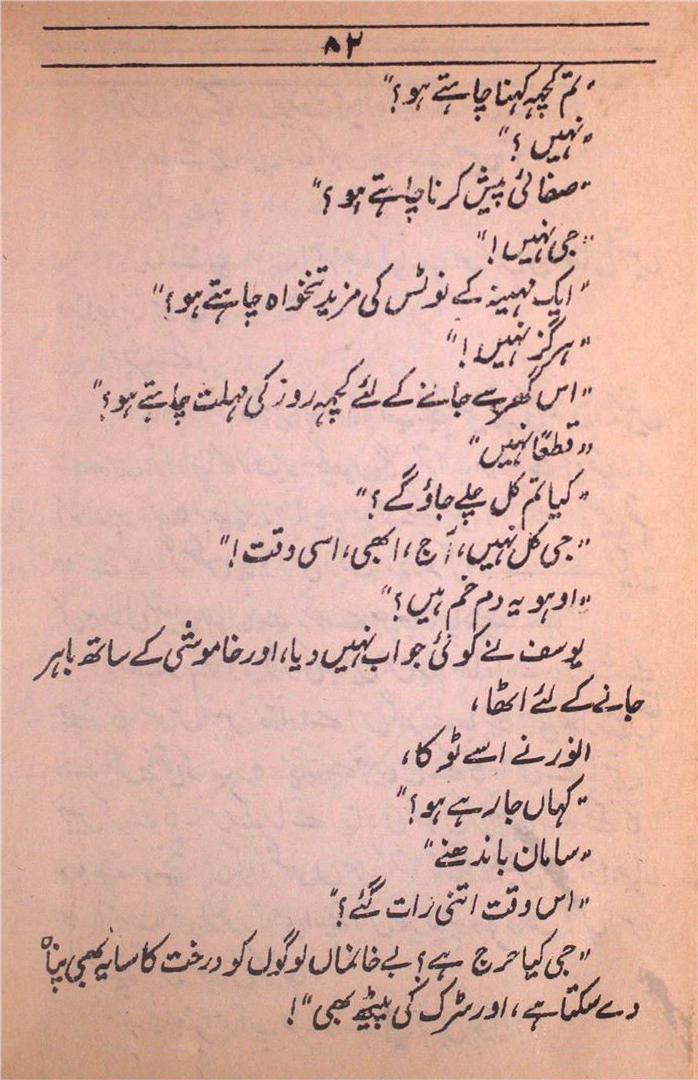 ۸۲
"تم کچھ کہنا چاہتے ہو؟"
"نہیں؟"
"صفائی پیش کرنا چاہتے ہو؟"
"جی نہیں!"
"ایک مہینہ کے نوٹس کی مزید تنخواہ چاہتے ہو؟"
"ہرگز نہیں!"
"اس گھر سے جانے کے لئے کچھ روز کی مہلت چاہتے ہو؟"
"قطعًا نہیں"
"کیا تم کل چلے جاؤ گے؟"
"جی کل نہیں، آج، ابھی، اسی وقت!"
"اوہو یہ دم خم ہیں؟"
یوسف نے کوئی جواب نہیں دیا، اور خاموشی کے ساتھ باہر
جانے کے لئے اٹھا،
انور نے اسے ٹوکا،
"کہاں جا رہے ہو؟"
"سامان باندھنے"
"اس وقت اتنی رات گئے؟"
"جی کیا حرج ہے؟ بے خانماں لوگوں کو درخت کا سایہ بھی پناہ
دے سکتا ہے، اور سڑک کی پیٹھ بھی"!